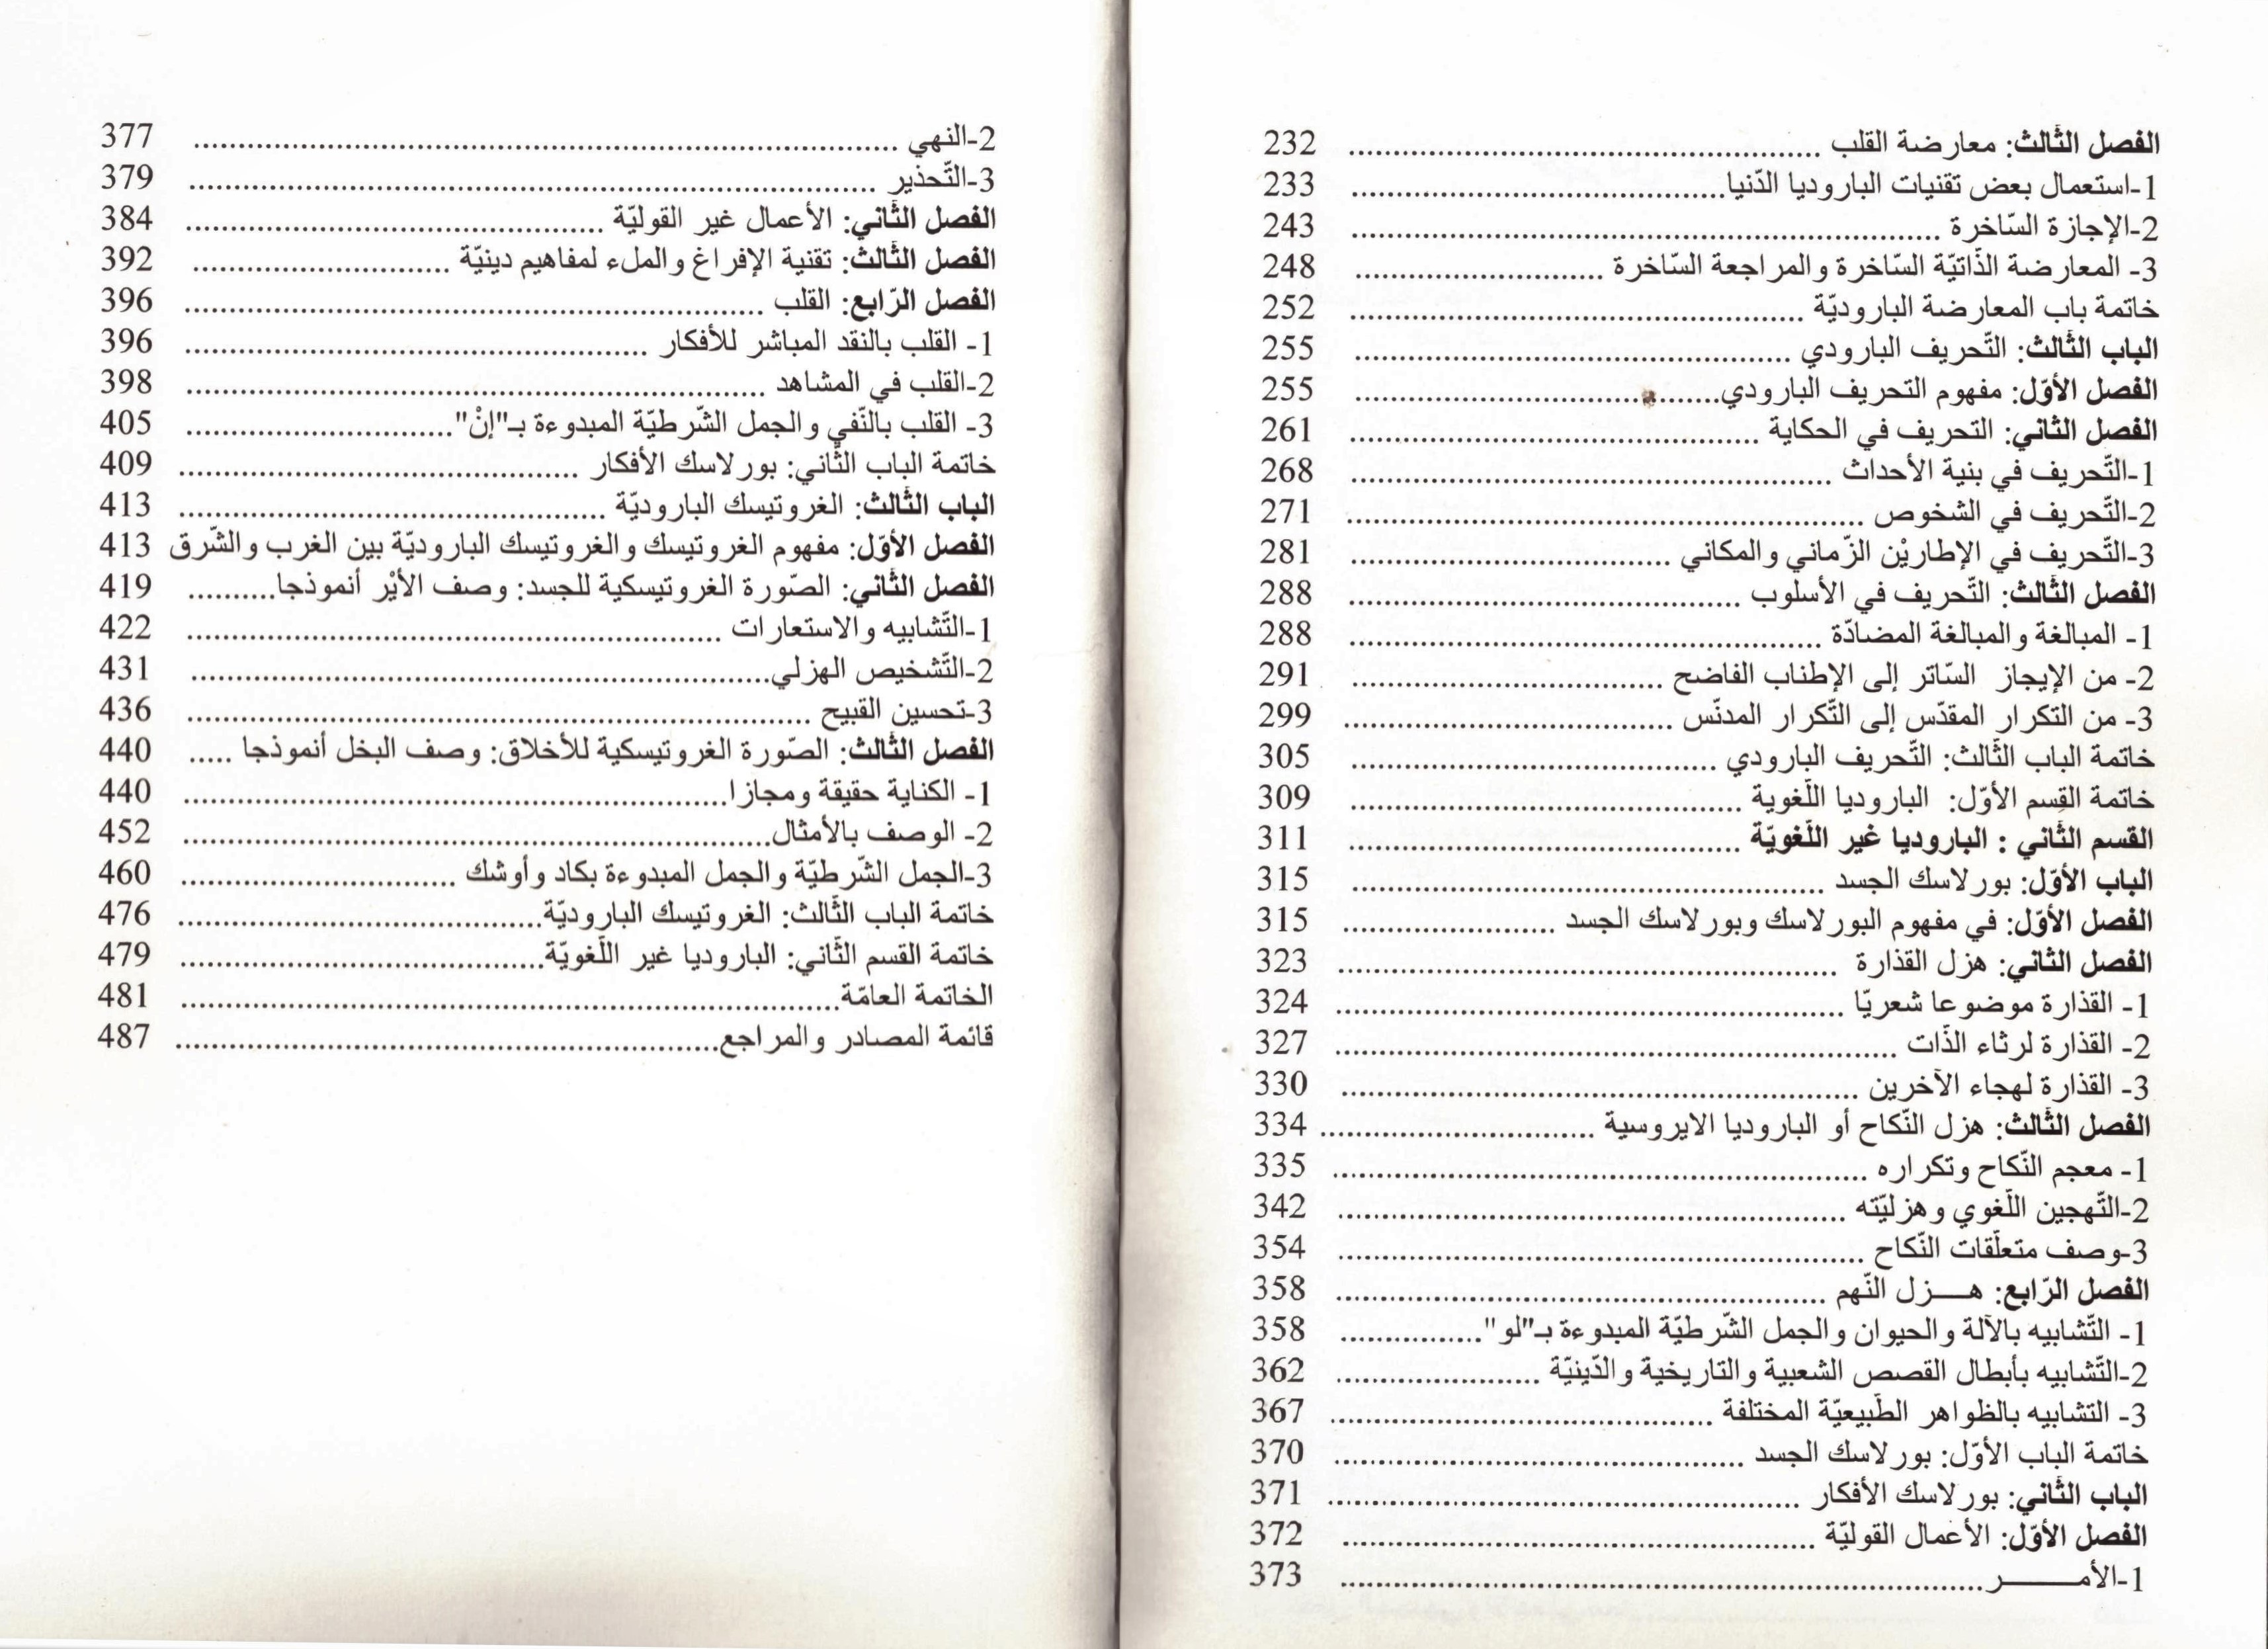 الفصل الثّالث: معارضة القلب ........ 232
1-استعمال بعض تقنيات الباروديا الدّنيا........ 233
2-الإجازة السّاخرة ........ 243
3- المعارضة الذّاتيّة السّاخرة والمراجعة السّاخرة ........ 248
خاتمة باب المعارضة الباروديّة ........ 252
الباب الثّالث: التّحريف البارودي ........ 255
الفصل الأوّل: مفهوم التحريف البارودي........ 255
الفصل الثّاني: التحريف في الحكاية ........ 261
1-التّحريف في بنية الأحداث ........ 268
2-التّحريف في الشخوص ........ 271
3-التّحريف في الإطاريْن الزّماني والمكاني ........ 281
الفصل الثّالث: التّحريف في الأسلوب ........ 288
1- المبالغة والمبالغة المضادّة ........ 288
2- من الإيجاز السّاتر إلى الإطناب الفاضح ........ 291
3- من التكرار المقدّس إلى التّكرار المدنّس ........ 299
خاتمة الباب الثّالث: التّحريف البارودي ........ 305
خاتمة القسم الأوّل: الباروديا اللّغوية ........ 309
القسم الثّاني : الباروديا غير اللّغويّة ........ 311
الباب الأوّل: بورلاسك الجسد ........ 315
الفصل الأوّل: في مفهوم البورلاسك وبورلاسك الجسد ........ 315
الفصل الثاني: هزل القذارة ........ 323
1- القذارة موضوعا شعريّا ........ 324
2- القذارة لرثاء الذّات ........ 327
3- القذارة لهجاء الآخرين ........ 330
الفصل الثّالث: هزل النّكاح أو الباروديا الايروسية ........ 334
1- معجم النّكاح وتكراره ........ 335
2-التّهجين اللّغوي وهزليّته ........ 342
3-وصف متعلّقات النّكاح ........ 354
الفصل الرّابع: هـــزل النّهم ........ 358
1- التّشابيه بالآلة والحيوان والجمل الشّرطيّة المبدوءة بـ"لو"........ 358
2-التّشابيه بأبطال القصص الشعبية والتاريخية والدّينيّة ........ 362
3- التشابيه بالظواهر الطّبيعيّة المختلفة ........ 367
خاتمة الباب الأوّل: بورلاسك الجسد ........ 370
الباب الثّاني: بورلاسك الأفكار ........ 371
الفصل الأوّل: الأعمال القوليّة ........ 372
1-الأمــــــر........ 373
2-النهي ........ 377
3-التّحذير ........ 379
الفصل الثّاني: الأعمال غير القوليّة ........ 384
الفصل الثّالث: تقنية الإفراغ والملء لمفاهيم دينيّة ........ 392
الفصل الرّابع: القلب ........ 396
1- القلب بالنقد المباشر للأفكار ........ 396
2-القلب في المشاهد ........ 398
3- القلب بالنّفي والجمل الشّرطيّة المبدوءة بـ"إنْ"........ 405
خاتمة الباب الثّاني: بورلاسك الأفكار ........ 409
الباب الثّالث: الغروتيسك الباروديّة ........ 413
الفصل الأوّل: مفهوم الغروتيسك والغروتيسك الباروديّة بين الغرب والشّرق 413
الفصل الثّاني: الصّورة الغروتيسكية للجسد: وصف الأيْر أنموذجا........ 419
1-التّشابيه والاستعارات ........ 422
2-التّشخيص الهزلي........ 431
3-تحسين القبيح ........ 436
الفصل الثّالث: الصّورة الغروتيسكية للأخلاق: وصف البخل أنموذجا ..... 440
1- الكناية حقيقة ومجازا........ 440
2- الوصف بالأمثال........ 452
3-الجمل الشّرطيّة والجمل المبدوءة بكاد وأوشك ........ 460
خاتمة الباب الثّالث: الغروتيسك الباروديّة........ 476
خاتمة القسم الثّاني: الباروديا غير اللّغويّة........ 479
الخاتمة العامّة........ 481
قائمة المصادر والمراجع........ 487